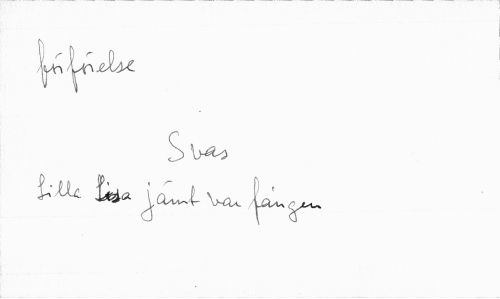 förförelse
Svas
Lilla Lisa jämt var fången